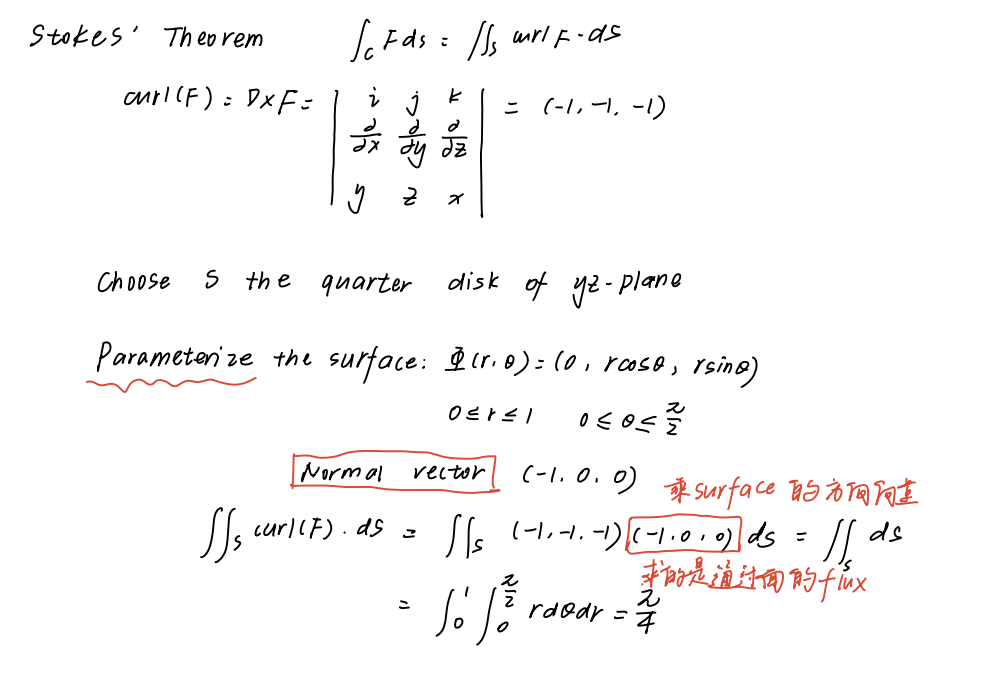 Stokes' Theorem ∫_C F ds = ∬_S curl F · ds
curl(F) = ∇×F = | i j k ; ∂/∂x ∂/∂y ∂/∂z ; y z x | = (-1, -1, -1)
Choose S the quarter disk of yz-plane
Parameterize the surface: Φ(r, θ) = (0, rcosθ, rsinθ)
0 ≤ r ≤ 1 0 ≤ θ ≤ π/2
Normal vector (-1, 0, 0)
乘surface 的方向向量
∬_S curl(F) · ds = ∬_S (-1, -1, -1) (-1, 0, 0) ds = ∬_S ds
求的是通过面的flux
= ∫_0^1 ∫_0^{π/2} r dθ dr = π/4